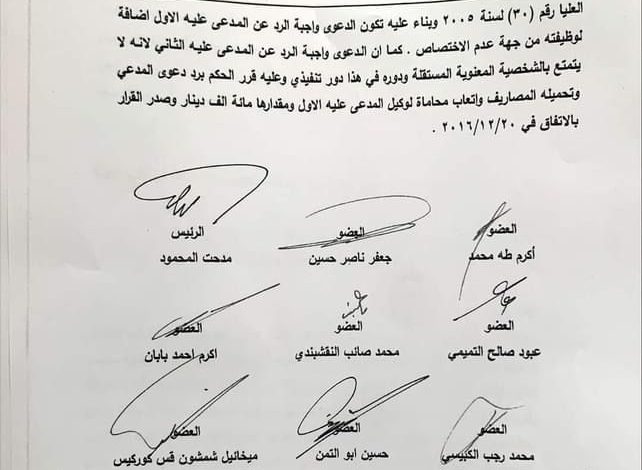 العليا رقم (٣٠) لسنة ٢٠٠٥ وبناء عليه تكون الدعوى واجبة الرد عن المدعى عليه الاول اضافة
لوظيفته من جهة عدم الاختصاص . كما ان الدعوى واجبة الرد عن المدعى عليه الثاني لانه لا
يتمتع بالشخصية المعنوية المستقلة ودوره في هذا دور تنفيذي وعليه قرر الحكم برد دعوى المدعي
وتحميله المصاريف واتعاب محاماة لوكيل المدعى عليه الاول ومقدارها مائة الف دينار وصدر القرار
بالاتفاق في ٢٠١٦/١٢/٢٠ .
العضو العضو الرئيس
أكرم طه محمد جعفر ناصر حسين مدحت المحمود
العضو العضو العضو
عبود صالح التميمي محمد صائب النقشبندي اكرم احمد بابان
العضو العضو العضو
محمد رجب الكبيسي حسين ابو التمن ميخائيل شمشون قس كوركيس